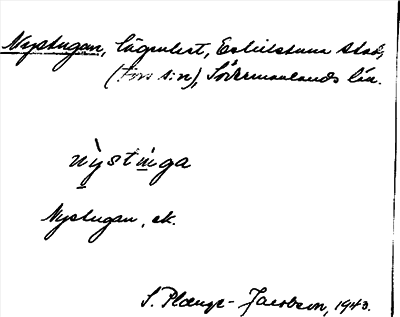 Nystugan, lägenhet, Eskilstuna stad,
(Fors s:n), Södermanlands län.
nystuga
Nystugan, ek.
S. Plænge-Jacobson, 1943.